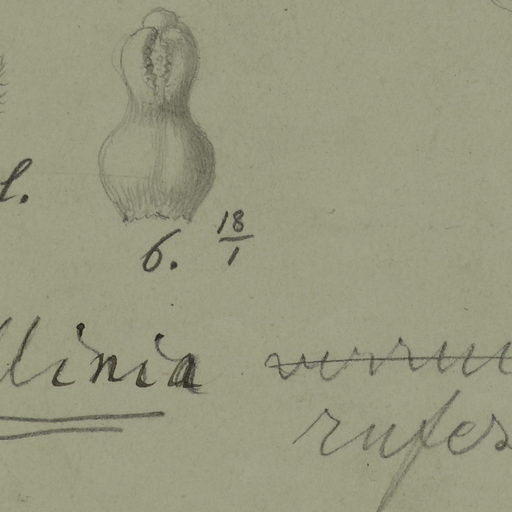 l.
6. 18/1
llinia
rufes